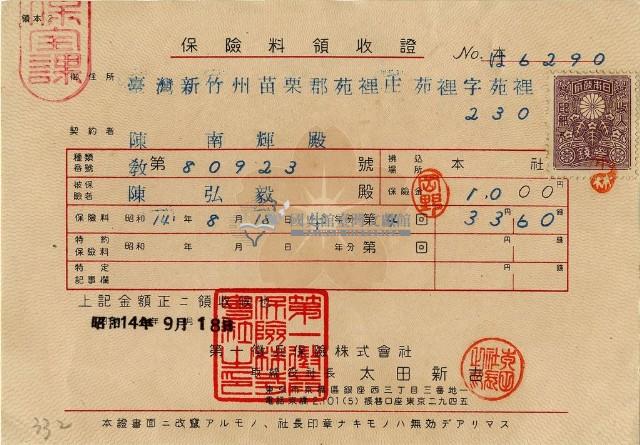 領本2
保險料領收證
No. 本 は6290
御住所 臺灣新竹州苗栗郡苑裡庄苑裡字苑裡
230
契約者 陳南輝殿
種類番號 教第80923號 拂込所 本社
被保險者 陳弘毅殿 保險金 1,000 圓
保險料 昭和14年8月18日 年分第4回 33圓60錢
特約保險料 昭和 年 月 日 年分第 回 圓 錢
特定記事欄
上記金額正ニ領收候也
昭和14年9月18日
第一徵兵保險株式會社
取締役社長 太田新吉
東京市京橋區銀座西三丁目三番地一
電話京橋2,101(5) 振替口座東京二九四五
本證書面ニ改竄アルモノ、社長印章ナキモノハ無効デアリマス
332